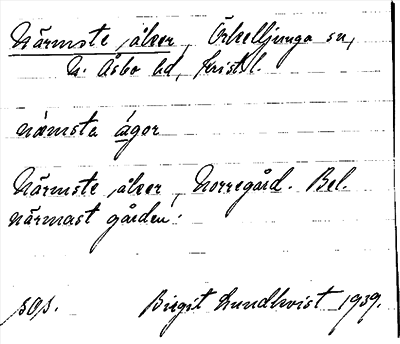 Närmste åker, Örkelljunga sn,
N. Åsbo hd, Kristl.
næmsta ágor
Närmste åker, Norregård. Bel.
närmast gården.
sos.
Birgit Lundkvist 1939.